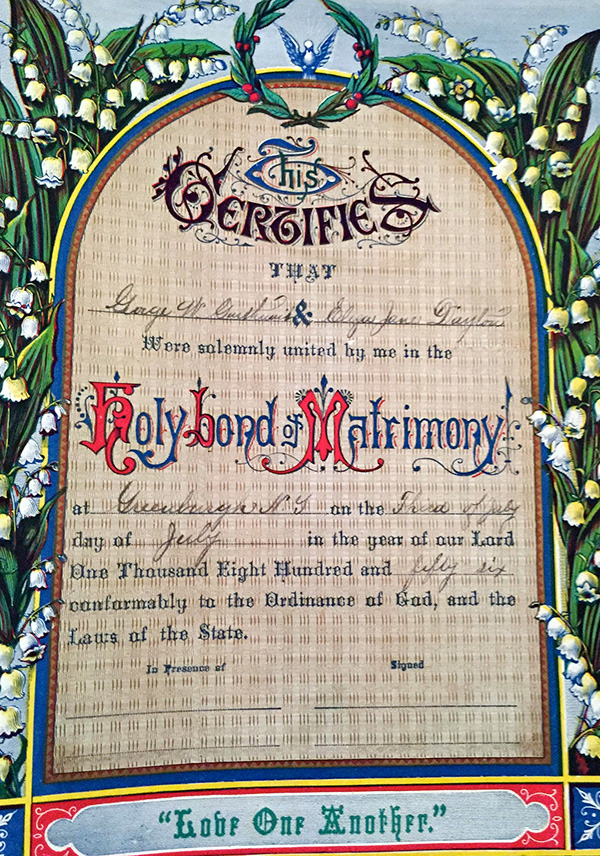 This
Certifies
THAT
George W & Eliza Jane Taylor
Were solemnly united by me in the
Holy bond of Matrimony
at Greenburgh N.Y on the Third of July
day of July in the year of our Lord
One Thousand Eight Hundred and fifty six
conformably to the Ordinance of God, and the
Laws of the State.
In Presence of Signed
"Love One Another."